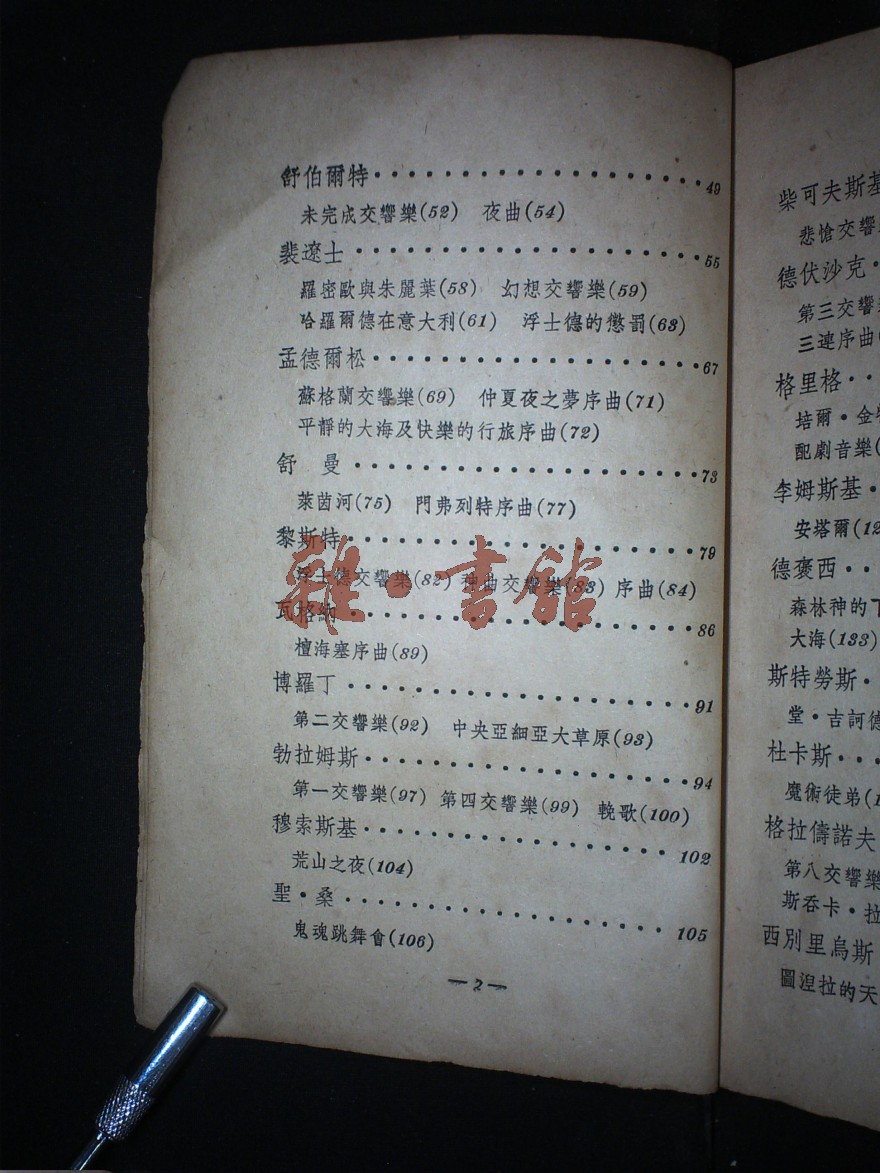 舒伯爾特··················49
未完成交響樂(52) 夜曲(54)
裴遼士··················55
羅密歐與朱麗葉(58) 幻想交響樂(59)
哈羅爾德在意大利(61) 浮士德的懲罰(63)
孟德爾松··················67
蘇格蘭交響樂(69) 仲夏夜之夢序曲(71)
平靜的大海及快樂的行旅序曲(72)
舒 曼··················73
萊茵河(75) 門弗列特序曲(77)
黎斯特··················79
浮士德交響樂(82) 神曲交響樂(83) 序曲(84)
瓦格納··················86
檀海塞序曲(89)
博羅丁··················91
第二交響樂(92) 中央亞細亞大草原(93)
勃拉姆斯··················94
第一交響樂(97) 第四交響樂(99) 輓歌(100)
穆索斯基··················102
荒山之夜(104)
聖·桑··················105
鬼魂跳舞會(106)
—2—
雜·書館
柴可夫斯基
悲愴交響
德伏沙克·
第三交響
三連序曲(
格里格··
培爾·金
配劇音樂(
李姆斯基·
安塔爾(12
德褒西··
森林神的下
大海(133)
斯特勞斯·
堂·吉訶德
杜卡斯···
魔術徒弟(1
格拉儔諾夫
第八交響樂
斯吞卡·拉
西別里烏斯
圖湼拉的天